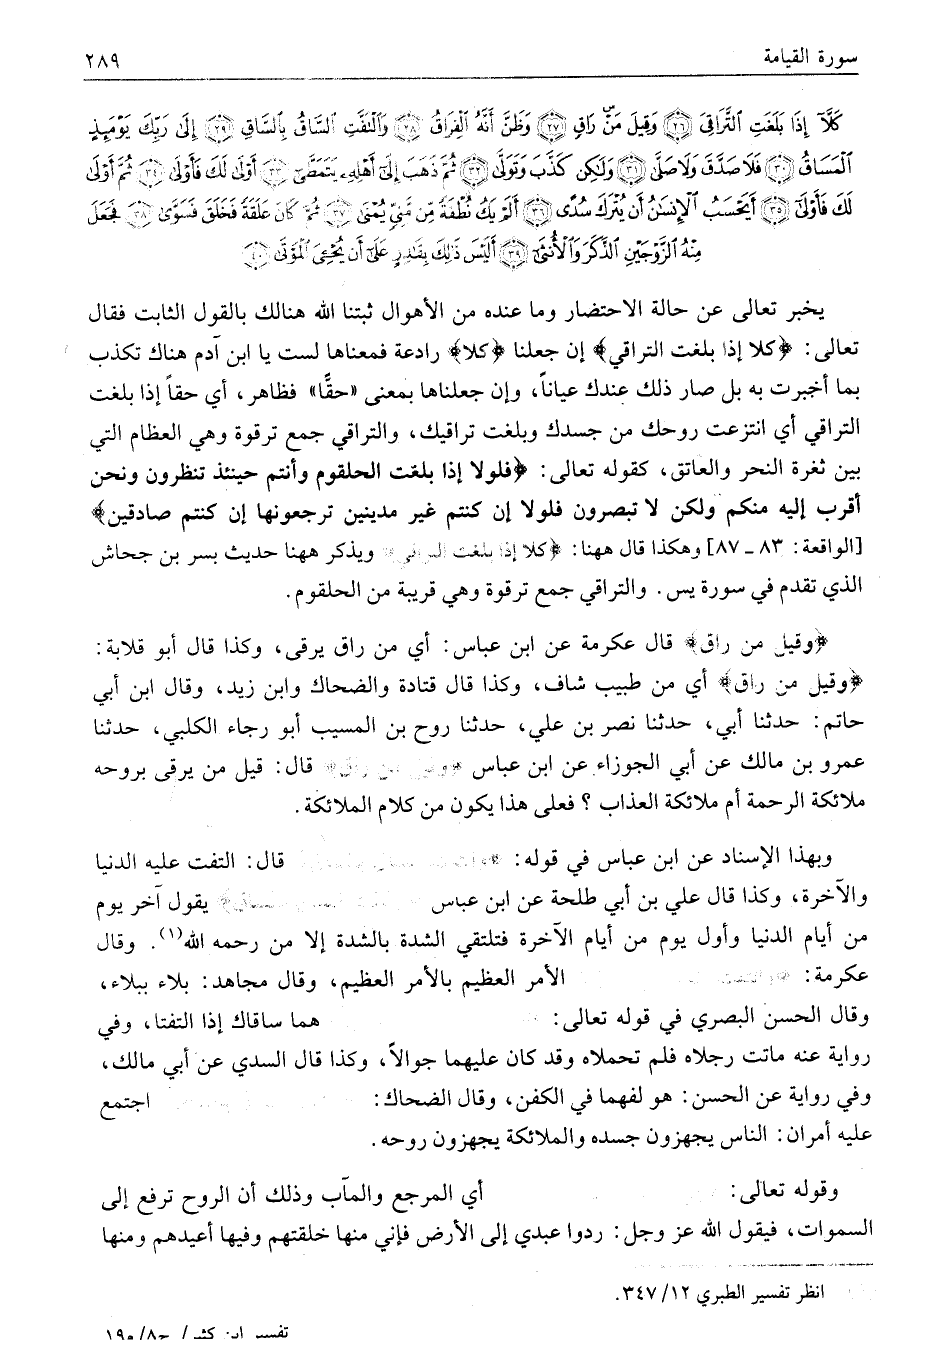 سورة القيامة ٢٨٩
كَلَّآ إِذَا بَلَغَتِ ٱلتَّرَاقِىَ ٢٦ وَقِيلَ مَنْ رَاقٍ ٢٧ وَظَنَّ أَنَّهُ ٱلْفِرَاقُ ٢٨ وَٱلْتَفَّتِ ٱلسَّاقُ بِٱلسَّاقِ ٢٩ إِلَىٰ رَبِّكَ يَوْمَئِذٍ
ٱلْمَسَاقُ ٣٠ فَلَا صَدَّقَ وَلَا صَلَّىٰ ٣١ وَلَٰكِن كَذَّبَ وَتَوَلَّىٰ ٣٢ ثُمَّ ذَهَبَ إِلَىٰٓ أَهْلِهِۦ يَتَمَطَّىٰٓ ٣٣ أَوْلَىٰ لَكَ فَأَوْلَىٰ ٣٤ ثُمَّ أَوْلَىٰ
لَكَ فَأَوْلَىٰٓ ٣٥ أَيَحْسَبُ ٱلْإِنسَٰنُ أَن يُتْرَكَ سُدًى ٣٦ أَلَمْ يَكُ نُطْفَةً مِّن مَّنِىٍّ يُمْنَىٰ ٣٧ ثُمَّ كَانَ عَلَقَةً فَخَلَقَ فَسَوَّىٰ ٣٨ فَجَعَلَ
مِنْهُ ٱلزَّوْجَيْنِ ٱلذَّكَرَ وَٱلْأُنثَىٰٓ ٣٩ أَلَيْسَ ذَٰلِكَ بِقَٰدِرٍ عَلَىٰٓ أَن يُحْۦِىَ ٱلْمَوْتَىٰ ٤٠
يخبر تعالى عن حالة الاحتضار وما عنده من الأهوال ثبتنا الله هنالك بالقول الثابت فقال
تعالى: ﴿كلا إذا بلغت التراقي﴾ إن جعلنا ﴿كلا﴾ رادعة فمعناها لست يا ابن آدم هناك تكذب
بما أخبرت به بل صار ذلك عندك عياناً، وإن جعلناها بمعنى «حقًّا» فظاهر، أي حقاً إذا بلغت
التراقي أي انتزعت روحك من جسدك وبلغت تراقيك، والتراقي جمع ترقوة وهي العظام التي
بين ثغرة النحر والعاتق، كقوله تعالى: ﴿فلولا إذا بلغت الحلقوم وأنتم حينئذ تنظرون ونحن
أقرب إليه منكم ولكن لا تبصرون فلولا إن كنتم غير مدينين ترجعونها إن كنتم صادقين﴾
[الواقعة: ٨٣ ـ ٨٧] وهكذا قال ههنا: ﴿كلا إذا بلغت التراقي﴾ ويذكر ههنا حديث بسر بن جحاش
الذي تقدم في سورة يس. والتراقي جمع ترقوة وهي قريبة من الحلقوم.
﴿وقيل من راق﴾ قال عكرمة عن ابن عباس: أي من راق يرقى، وكذا قال أبو قلابة:
﴿وقيل من راق﴾ أي من طبيب شاف، وكذا قال قتادة والضحاك وابن زيد، وقال ابن أبي
حاتم: حدثنا أبي، حدثنا نصر بن علي، حدثنا روح بن المسيب أبو رجاء الكلبي، حدثنا
عمرو بن مالك عن أبي الجوزاء عن ابن عباس ﴿وقيل من راق﴾ قال: قيل من يرقى بروحه
ملائكة الرحمة أم ملائكة العذاب ؟ فعلى هذا يكون من كلام الملائكة.
وبهذا الإسناد عن ابن عباس في قوله: قال: التفت عليه الدنيا
والآخرة، وكذا قال علي بن أبي طلحة عن ابن عباس يقول آخر يوم
من أيام الدنيا وأول يوم من أيام الآخرة فتلتقي الشدة بالشدة إلا من رحمه الله(١). وقال
عكرمة: الأمر العظيم بالأمر العظيم، وقال مجاهد: بلاء ببلاء،
وقال الحسن البصري في قوله تعالى: هما ساقاك إذا التفتا، وفي
رواية عنه ماتت رجلاه فلم تحملاه وقد كان عليهما جوالاً، وكذا قال السدي عن أبي مالك،
وفي رواية عن الحسن: هو لفهما في الكفن، وقال الضحاك: اجتمع
عليه أمران: الناس يجهزون جسده والملائكة يجهزون روحه.
وقوله تعالى: أي المرجع والمآب وذلك أن الروح ترفع إلى
السموات، فيقول الله عز وجل: ردوا عبدي إلى الأرض فإني منها خلقتهم وفيها أعيدهم ومنها
انظر تفسير الطبري ١٢/ ٣٤٧.
تفسير ابن كثير/ ج٨/ م١٩